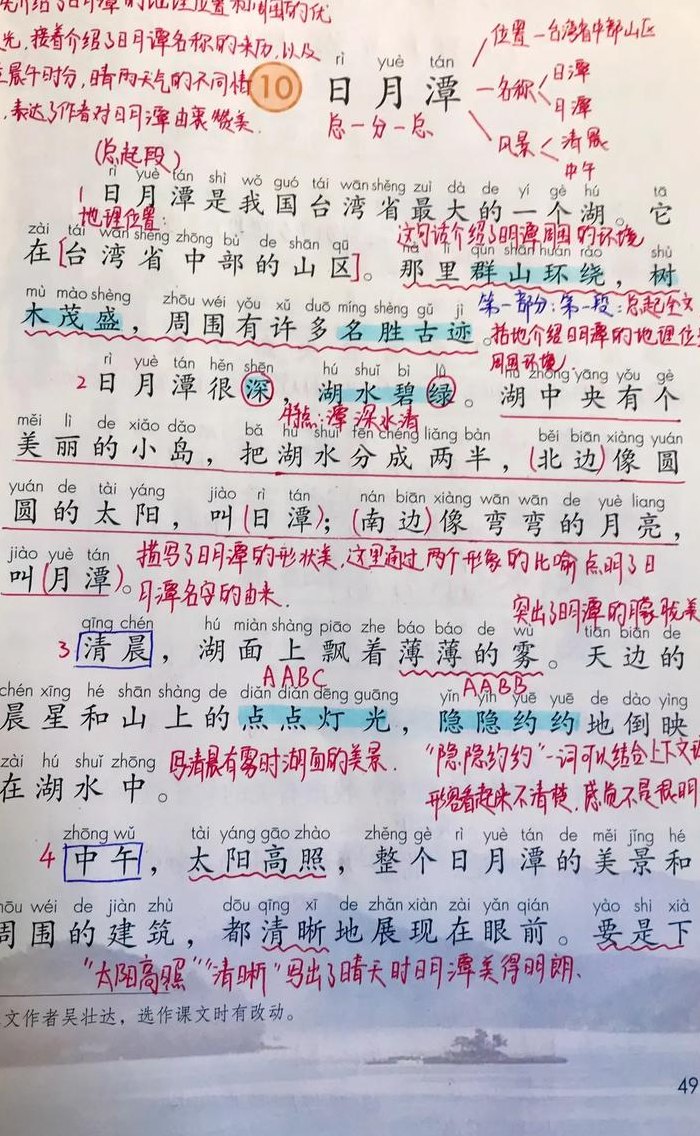 介绍了日月潭的地理位置和周围的优
光,接着介绍了日月潭名称的来历,以及
晨午时分,晴雨天气的不同情
,表达了作者对日月潭由衷赞美.
位置-台湾省中部山区
名称
日潭
月潭
风景
清晨
中午
rì yuè tán
10 日月潭
总-分-总
(总起段)
rì yuè tán shì wǒ guó tái wān shěng zuì dà de yí gè hú tā
1 日月潭是我国台湾省最大的一个湖。它
地理位置:
这句话介绍了日月潭周围的环境
zài tái wān shěng zhōng bù de shān qū nà lǐ qún shān huán rào shù
在[台湾省中部的山区]。那里群山环绕,树
mù mào shèng zhōu wéi yǒu xǔ duō míng shèng gǔ jì
第一部分:第一段:总起全文
木茂盛,周围有许多名胜古迹。
括地介绍日月潭的地理位
周围环境
rì yuè tán hěn shēn hú shuǐ bì lǜ hú zhōng yāng yǒu gè
2 日月潭很深,湖水碧绿。湖中央有个
特点:潭深水清
měi lì de xiǎo dǎo bǎ hú shuǐ fēn chéng liǎng bàn běi biān xiàng yuán
美丽的小岛,把湖水分成两半,(北边)像圆
yuán de tài yáng jiào rì tán nán biān xiàng wān wān de yuè liang
圆的太阳,叫(日潭);(南边)像弯弯的月亮,
jiào yuè tán
叫(月潭)。
描写了日月潭的形状美,这里通过两个形象的比喻点明了日
月潭名字的由来.
突出了日月潭的朦胧美
qīng chén hú miàn shàng piāo zhe báo báo de wù tiān biān de
3 清晨,湖面上飘着薄薄的雾。天边的
AABC
AABB
chén xīng hé shān shàng de diǎn diǎn dēng guāng yǐn yǐn yuē yuē de dào yìng
晨星和山上的点点灯光,隐隐约约地倒映
zài hú shuǐ zhōng
在湖水中。
写清晨有雾时湖面的美景.
“隐隐约约”一词可以结合上下文
形容看起来不清楚,感觉不是很明
zhōng wǔ tài yáng gāo zhào zhěng gè rì yuè tán de měi jǐng hé
4 中午,太阳高照,整个日月潭的美景和
zhōu wéi de jiàn zhù dōu qīng xī de zhǎn xiàn zài yǎn qián yào shi xià
周围的建筑,都清晰地展现在眼前。要是下
“太阳高照”“清晰”写出了晴天时日月潭美得明朗、
文作者吴壮达,选作课文时有改动。
49